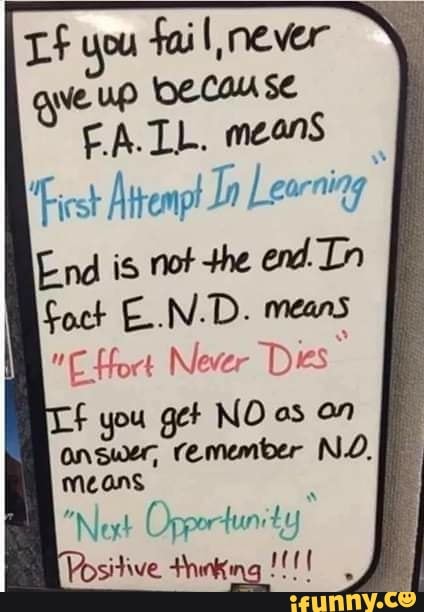 If you fail, never
give up because
F.A.I.L. means
"First Attempt In Learning"
End is not the end. In
fact E.N.D. means
"Effort Never Dies"
If you get NO as an
answer, remember N.O.
means
"Next Opportunity"
Positive thinking !!!!
ifunny.co